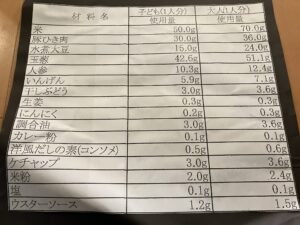 材料名 子ども(1人分) 大人(1人分)
使用量 使用量
米 50.0g 70.0g
豚ひき肉 30.0g 36.0g
水煮大豆 15.0g 24.0g
玉葱 42.6g 51.1g
人参 10.3g 12.4g
いんげん 5.9g 7.1g
干しぶどう 3.0g 3.6g
生姜 0.3g 0.3g
にんにく 0.2g 0.3g
調合油 3.0g 3.6g
カレー粉 0.1g 0.1g
洋風だしの素(コンソメ) 0.5g 0.6g
ケチャップ 3.0g 3.6g
米粉 2.0g 2.4g
塩 0.1g 0.1g
ウスターソース 1.2g 1.5g